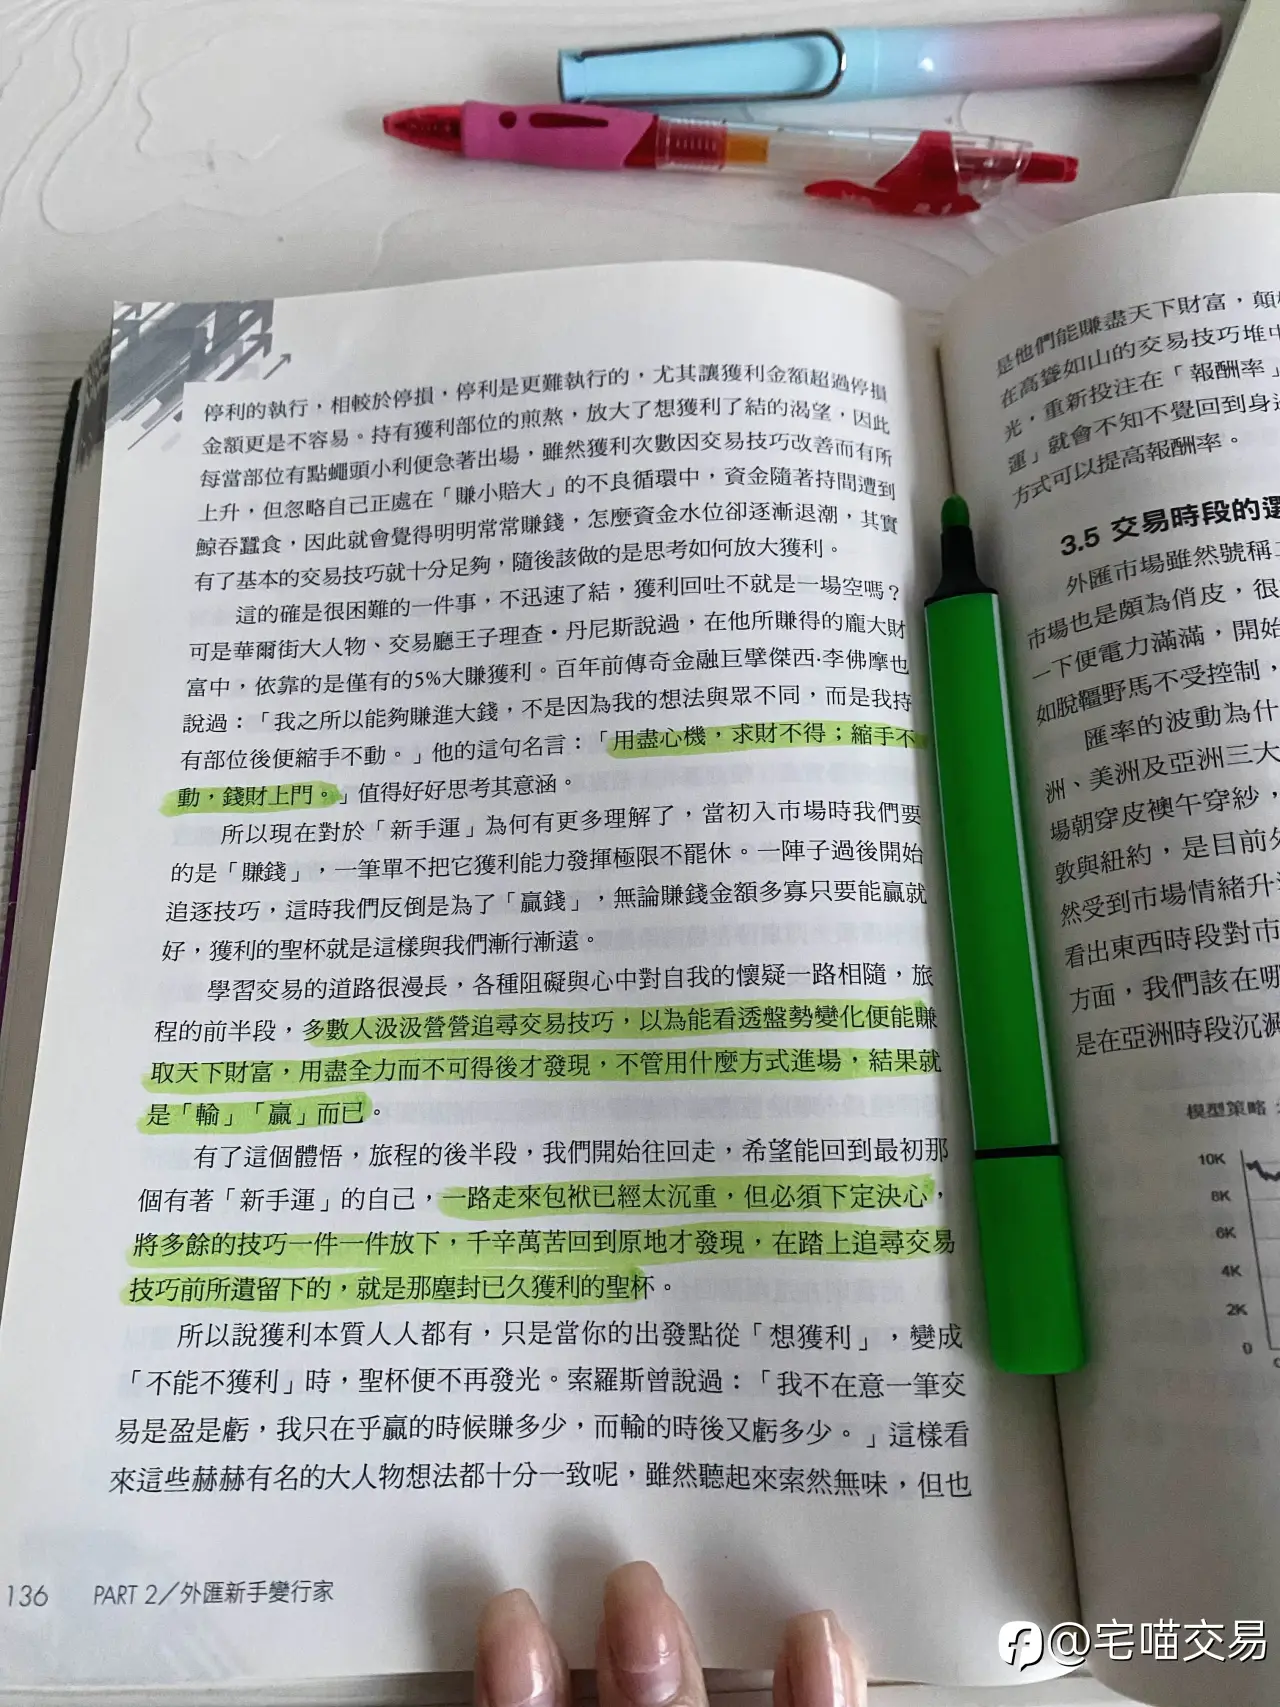 停利的執行，相較於停損，停利是更難執行的，尤其讓獲利金額超過停損
金額更是不容易。持有獲利部位的煎熬，放大了想獲利了結的渴望，因此
每當部位有點蠅頭小利便急著出場，雖然獲利次數因交易技巧改善而有所
上升，但忽略自己正處在「賺小賠大」的不良循環中，資金隨著持間遭到
鯨吞蠶食，因此就會覺得明明常常賺錢，怎麼資金水位卻逐漸退潮，其實
有了基本的交易技巧就十分足夠，隨後該做的是思考如何放大獲利。
這的確是很困難的一件事，不迅速了結，獲利回吐不就是一場空嗎？
可是華爾街大人物、交易廳王子理查·丹尼斯說過，在他所賺得的龐大財
富中，依靠的是僅有的5%大賺獲利。百年前傳奇金融巨擘傑西·李佛摩也
說過：「我之所以能夠賺進大錢，不是因為我的想法與眾不同，而是我持
有部位後便縮手不動。」他的這句名言：「用盡心機，求財不得；縮手不
動，錢財上門。」值得好好思考其意涵。
所以現在對於「新手運」為何有更多理解了，當初入市場時我們要
的是「賺錢」，一筆單不把它獲利能力發揮極限不罷休。一陣子過後開始
追逐技巧，這時我們反倒是為了「贏錢」，無論賺錢金額多寡只要能贏就
好，獲利的聖杯就是這樣與我們漸行漸遠。
學習交易的道路很漫長，各種阻礙與心中對自我的懷疑一路相隨，旅
程的前半段，多數人汲汲營營追尋交易技巧，以為能看透盤勢變化便能賺
取天下財富，用盡全力而不可得後才發現，不管用什麼方式進場，結果就
是「輸」「贏」而已。
有了這個體悟，旅程的後半段，我們開始往回走，希望能回到最初那
個有著「新手運」的自己，一路走來包袱已經太沉重，但必須下定決心，
將多餘的技巧一件一件放下，千辛萬苦回到原地才發現，在踏上追尋交易
技巧前所遺留下的，就是那塵封已久獲利的聖杯。
所以說獲利本質人人都有，只是當你的出發點從「想獲利」，變成
「不能不獲利」時，聖杯便不再發光。索羅斯曾說過：「我不在意一筆交
易是盈是虧，我只在乎贏的時候賺多少，而輸的時後又虧多少。」這樣看
來這些赫赫有名的大人物想法都十分一致呢，雖然聽起來索然無味，但也
136 PART 2／外匯新手變行家
是他們能賺盡天下財富，顛
在高聳如山的交易技巧堆中
光，重新投注在「報酬率」
運」就會不知不覺回到身
方式可以提高報酬率。
3.5 交易時段的選
外匯市場雖然號稱
市場也是頗為俏皮，很
一下便電力滿滿，開始
如脫韁野馬不受控制，
匯率的波動為什
洲、美洲及亞洲三大
場朝穿皮襖午穿紗，
敦與紐約，是目前外
然受到市場情緒升
看出東西時段對市
方面，我們該在哪
是在亞洲時段沉澱
模型策略
10K
8K
6K
4K
2K
0
@宅喵交易